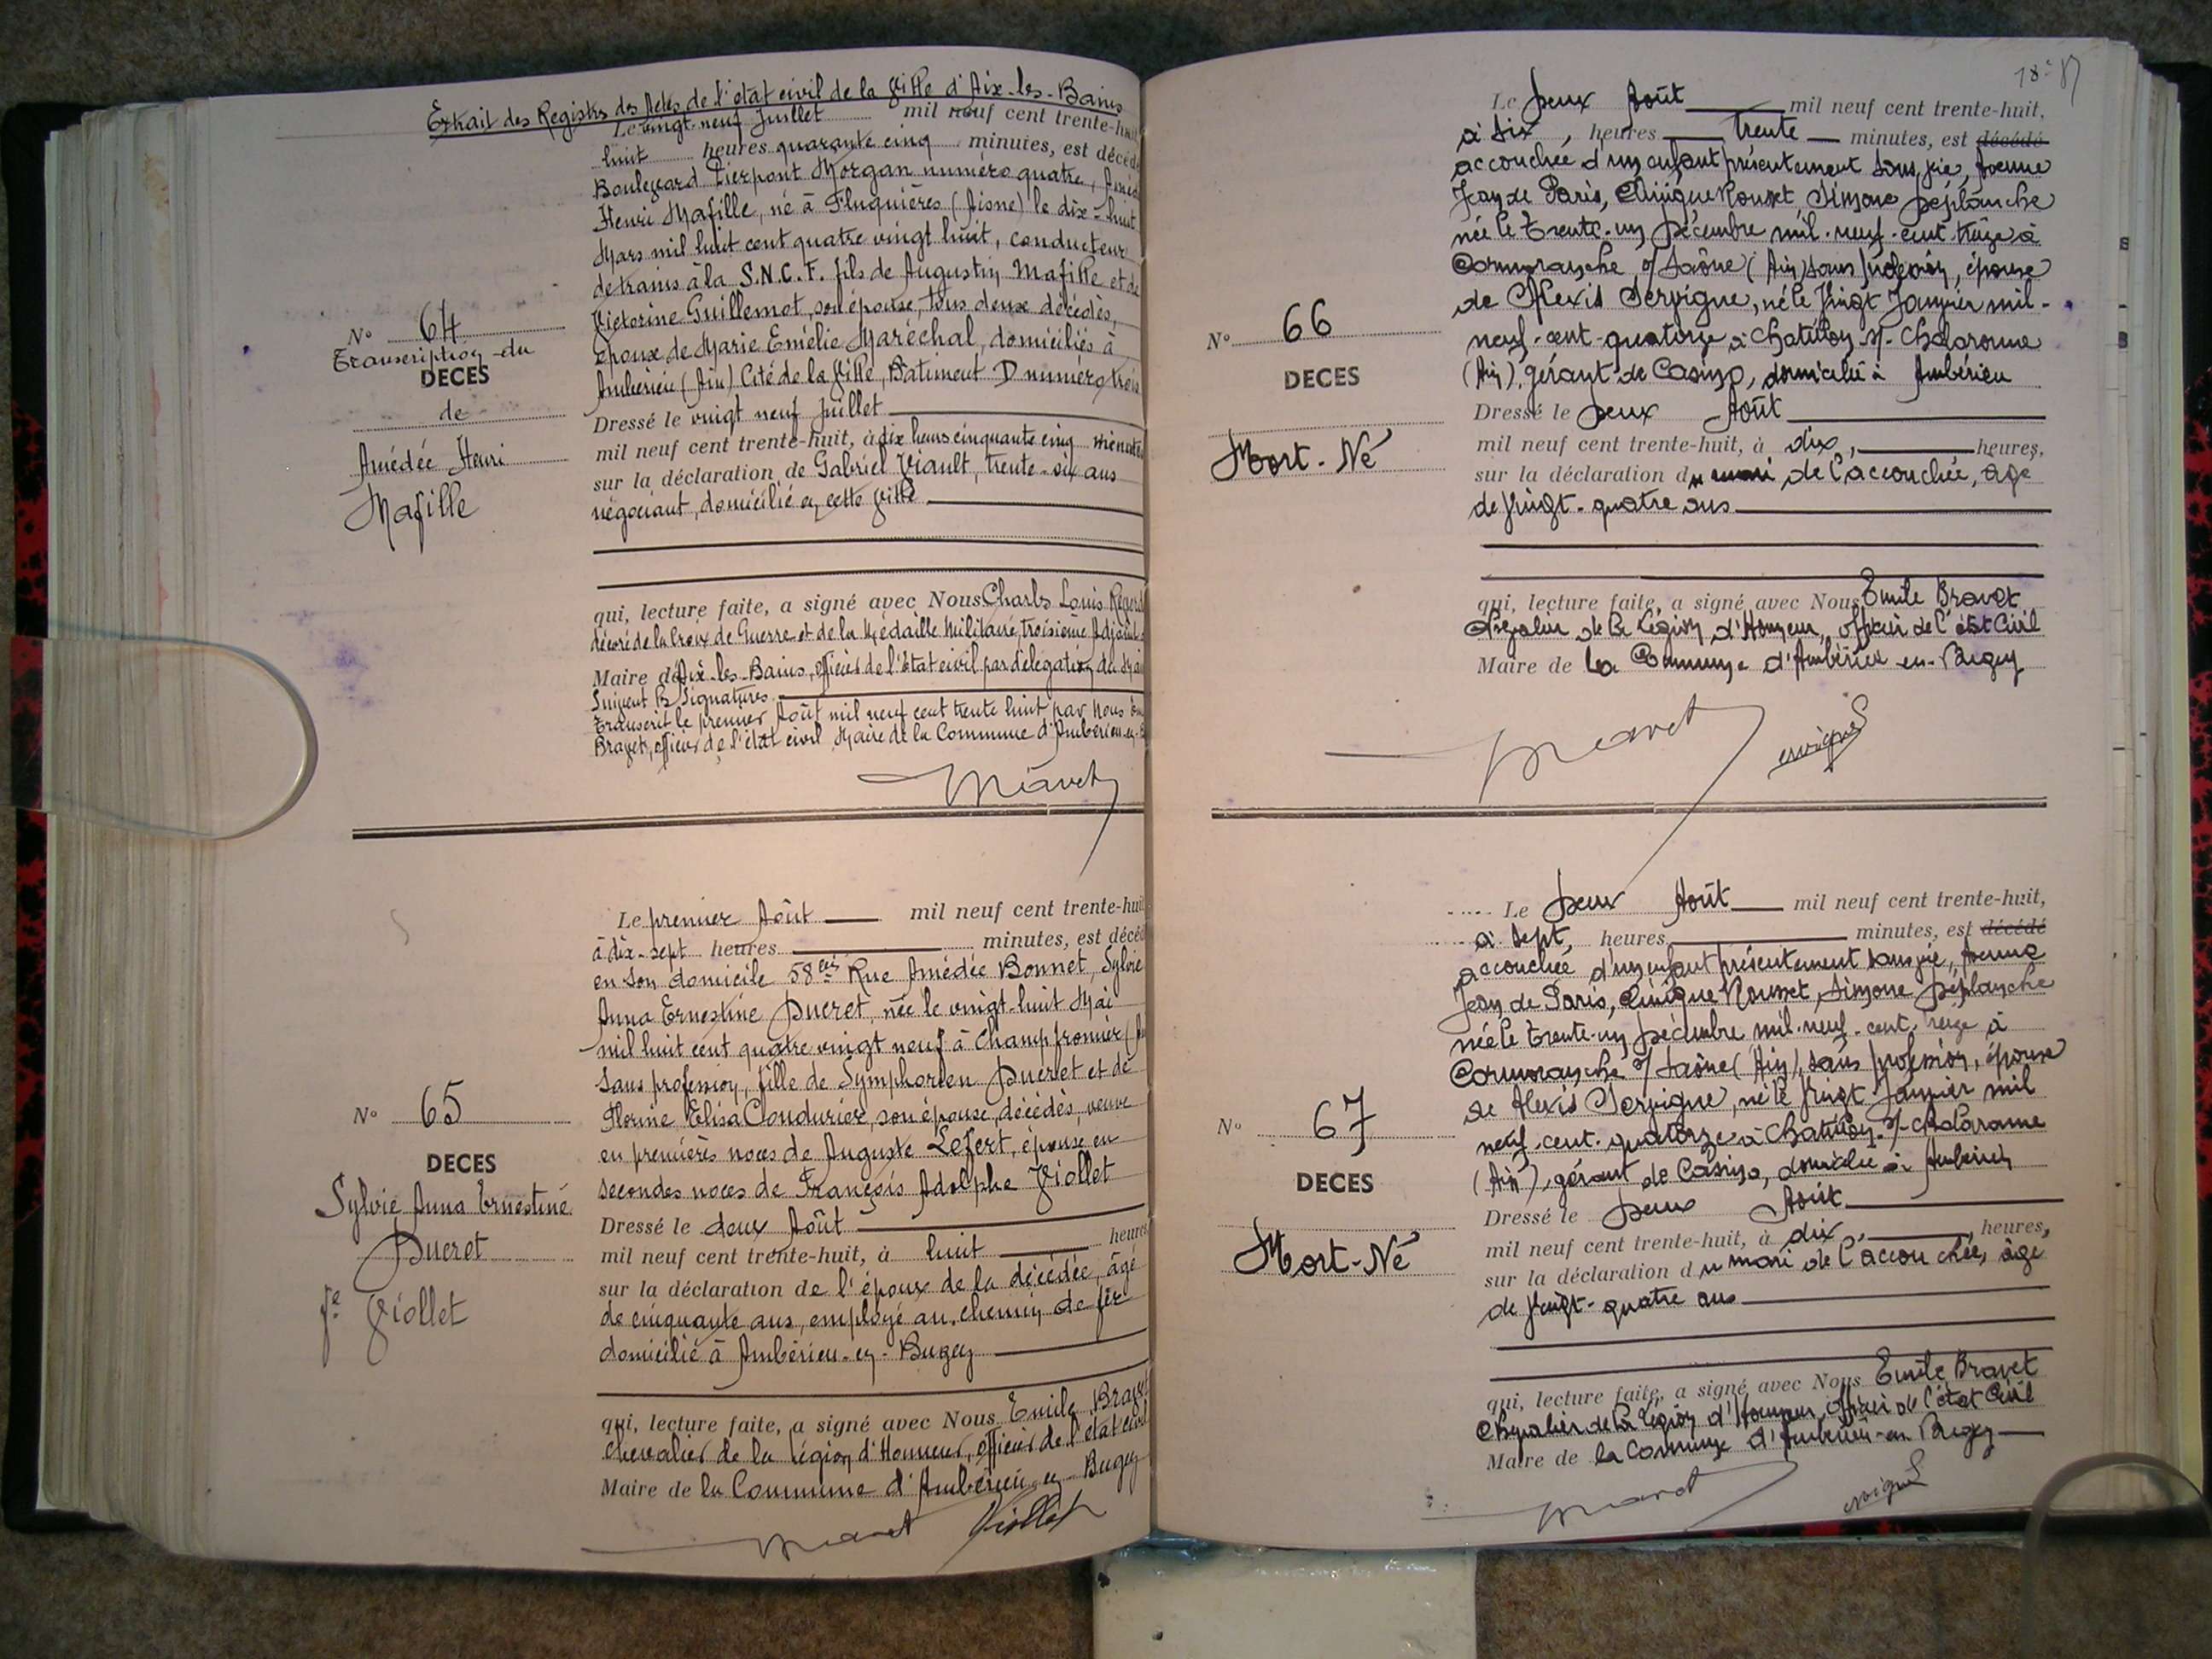 Extrait des Registres des Actes de l'état civil de la Ville d'Aix-les-Bains
Le vingt-neuf Juillet mil neuf cent trente-huit
huit heures quarante cinq minutes, est décédé
Boulevard Pierpont Morgan numéro quatre,
Henri Mafille, né à Fluquières (Aisne) le dix-huit
Mars mil huit cent quatre vingt huit, conducteur
de trains à la S.N.C.F. fils de Augustin Mafille et de
Victorine Guillemot, son épouse, tous deux décédés,
époux de Marie Emélie Maréchal, domiciliés à
Ambérieu (Ain) Cité de la Ville, Batiment D numéro trois
Dressé le vingt neuf Juillet
mil neuf cent trente-huit, à dix heures cinquante cinq minutes
sur la déclaration de Gabriel Viault, trente-six ans
négociant, domicilié en cette ville
qui, lecture faite, a signé avec Nous Charles Louis
décoré de la Croix de Guerre et de la Médaille Militaire, troisième Adjoint
Maire d'Aix-les-Bains, officier de l'état civil par délégation du
Suivent les Signatures
Transcrit le premier Août mil neuf cent trente huit par Nous
Bravet, officier de l'état civil, Maire de la Commune d'Ambérieu-en-
N° 64
Transcription du
DECES
de
Amédée Henri
Mafille
Bravet
Le premier Août mil neuf cent trente-huit
à dix-sept heures minutes, est décédé
en son domicile 58 Rue Amédée Bonnet, Sylvie
Anna Ernestine Ducret, née le vingt-huit Mai
mil huit cent quatre vingt neuf à Champfromier
sans profession, fille de Symphorien Ducret et de
Florine Elisa Coudurier, son épouse, décédés, veuve
en premières noces de Auguste Lefert, épouse en
secondes noces de François Adolphe Viollet
Dressé le deux Août
mil neuf cent trente-huit, à huit heures
sur la déclaration de l'époux de la décédée, âgé
de cinquante ans, employé au chemin de fer
domicilié à Ambérieu-en-Bugey
qui, lecture faite, a signé avec Nous Emile Bravet
chevalier de la Légion d'Honneur, officier de l'état civil
Maire de la Commune d'Ambérieu-en-Bugey
N° 65
DECES
Sylvie Anna Ernestine
Ducret
Fe Viollet
Bravet Viollet
18e
Le Deux Août mil neuf cent trente-huit,
à six, heures trente minutes, est décédé
accouchée d'un enfant présentement sans vie, Avenue
Jean de Paris, Clinique Rousset, Simone Déplanche
née le trente-un Décembre mil-neuf-cent-treize à
Cormoranche s/ Saône (Ain) sans profession, épouse
de Alexis Servigne, né le Vingt Janvier mil-
neuf-cent-quatorze à Chatillon s/- Chalaronne
(Ain), gérant de Casino, domicilié à Ambérieu
Dressé le Deux Août
mil neuf cent trente-huit, à dix, heures,
sur la déclaration du mari de l'accouchée, âgé
de Vingt-quatre ans
qui, lecture faite, a signé avec Nous Emile Bravet
Chevalier de la Légion d'Honneur, officier de l'état Civil
Maire de la Commune d'Ambérieu-en-Bugey
N° 66
DECES
Mort-Né
Bravet Servigne
Le Deux Août mil neuf cent trente-huit,
à sept, heures, minutes, est décédé
accouchée d'un enfant présentement sans vie, Avenue
Jean de Paris, Clinique Rousset, Simone Déplanche
née le trente-un Décembre mil-neuf-cent-treize à
Cormoranche s/ Saône (Ain), sans profession, épouse
de Alexis Servigne, né le Vingt Janvier mil
neuf-cent-quatorze à Chatillon s/- Chalaronne
(Ain), gérant de Casino, domicilié à Ambérieu
Dressé le Deux Août
mil neuf cent trente-huit, à dix, heures,
sur la déclaration du mari de l'accouchée, âgé
de Vingt-quatre ans
qui, lecture faite, a signé avec Nous Emile Bravet
Chevalier de la Légion d'Honneur, officier de l'état Civil
Maire de la Commune d'Ambérieu-en-Bugey
N° 67
DECES
Mort-Né
Bravet Servigne